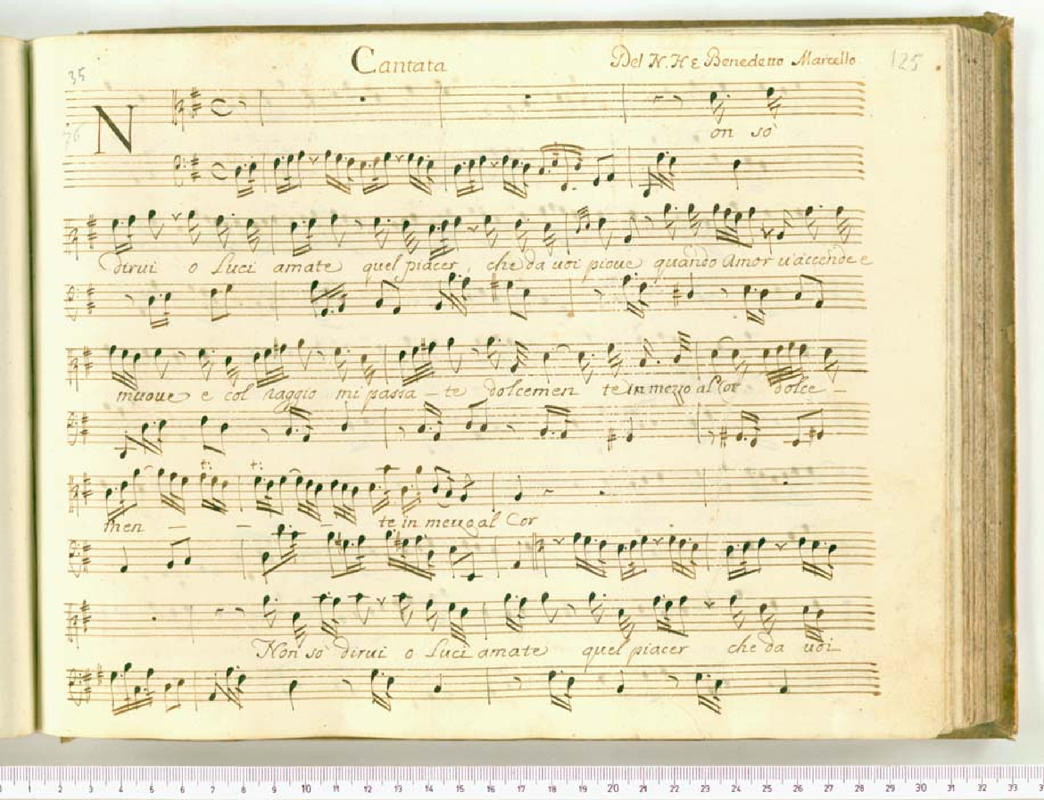 Cantata Del N. H. E. Benedetto Marcello 125
35
Non sò
dirvi o Luci amate quel piacer, che da voi piove quando Amor v'accende e
muove e col raggio mi passa - te dolcemen te in mezzo al Cor dolce -
men - - - te in mezzo al Cor
Non sò dirvi o Luci amate quel piacer che da voi
0 1 2 3 4 5 6 7 8 9 10 11 12 13 14 15 16 17 18 19 20 21 22 23 24 25 26 27 28 29 30 31 32 33